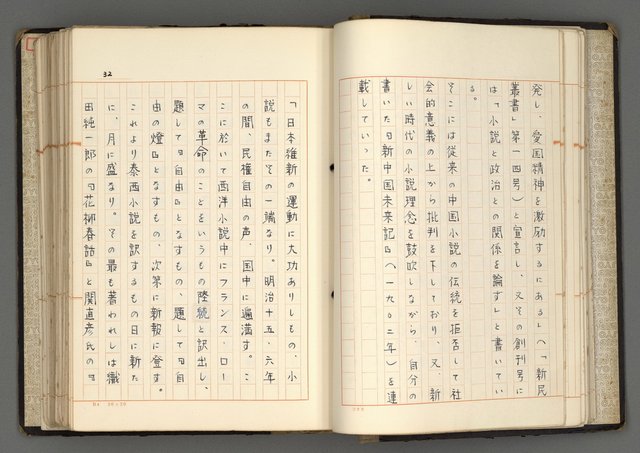 発し、愛国精神を激励するにある」(「新民
叢書」第一四号)と宣言し、又その創刊号に
は「小説と政治との関係を論ず」と書いてい
る。
そこには従来の中国小説の伝統を拒否して社
会的意義の上から批判を下しており、又、新
しい時代の小説理念を鼓吹しながら、自分の
書いた『新中国未来記』(一九〇二年)を連
載していった。
32
「日本維新の運動に大功ありしもの、小
説もまたその一端なり。明治十五、六年
の間、民権自由の声、国中に遍満す。こ
こに於いて西洋小説中にフランス・ロー
マの革命のことをいうもの陸続と訳出し、
題して『自由』となすもの、題して『自
由の燈』となすもの、次第に新報に登す。
これより泰西小説を訳するもの日に新た
に、月に盛なり。その最も著われしは織
田純一郎の『花柳春話』と関直彦氏の『